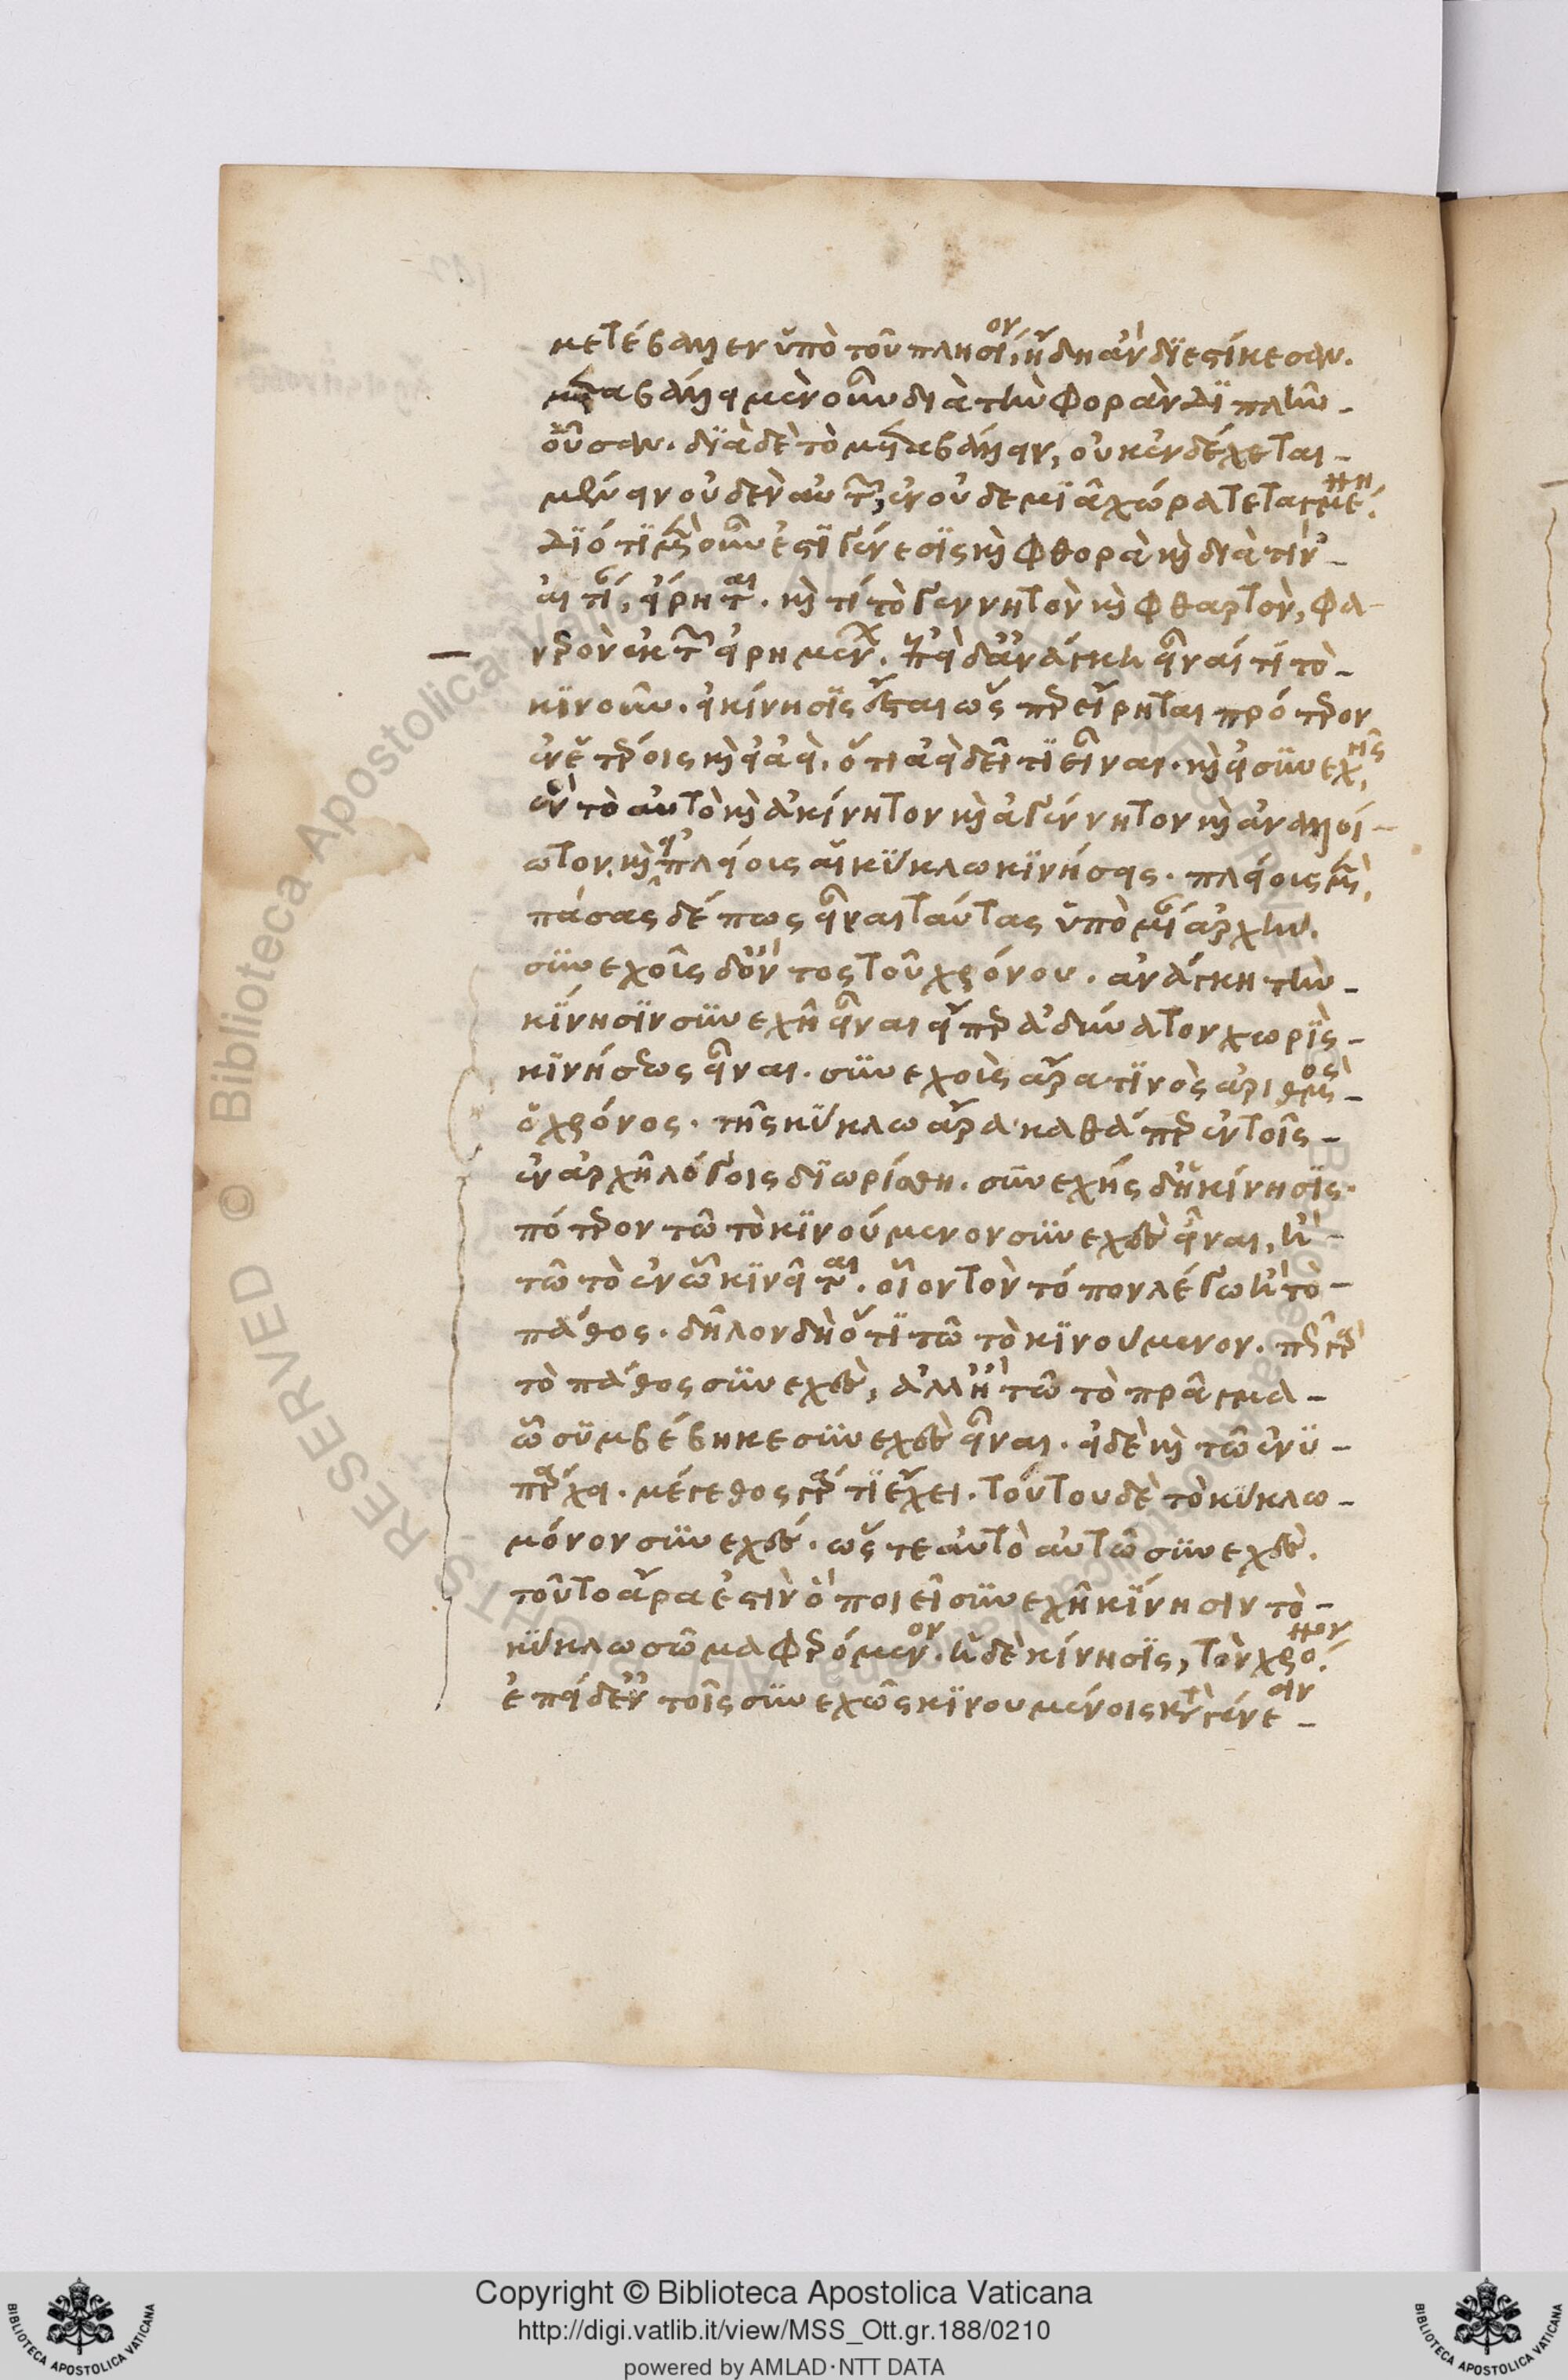 μετέβαλλεν ὑπὸ τοῦ πλησίον, ἤδη ἂν διεστήκεσαν.
μεταβάλλει μὲν οὖν διὰ τὴν φορὰν διπλῆν
οὖσαν. διὰ δὲ τὸ μεταβάλλειν, οὐκ ἐνδέχεται
μένειν οὐδὲν αὐτῶν ἐν οὐδεμιᾷ χώρα τεταγμένη.
διότι μὲν οὖν ἐστὶ γένεσις καὶ φθορὰ καὶ διὰ τίν
αἰτίαν, εἴρηται. καὶ τί τὸ γεννητὸν καὶ φθαρτὸν, φα
νερὸν ἐκ τῶν εἰρημένων. ἐπεὶ δ' ἀνάγκη εἶναί τι τὸ
κινοῦν. εἰ κίνησις ἔσται ὥσπερ εἴρηται πρότερον
ἐν ἑτέροις καὶ εἰ ἀεὶ. ὅτι ἀεὶ δεῖ τι εἶναι. καὶ εἰ συνεχὴς,
ἓν τὸ αὐτὸ καὶ ἀκίνητον καὶ ἀγέννητον καὶ ἀναλλοί
ωτον, καὶ εἰ πλείους αἱ κύκλω κινήσεις. πλείους μὲν,
πάσας δέ πως εἶναι ταύτας ὑπὸ μίαν ἀρχὴν.
συνεχοῦς δ' ὄντος τοῦ χρόνου. ἀνάγκη τὴν
κίνησιν συνεχῆ εἶναι εἴπερ ἀδύνατον χωρὶς
κινήσεως εἶναι. συνεχοῦς ἄρα τινὸς ἀριθμὸς
ὁ χρόνος. τῆς κύκλω ἄρα καθάπερ ἐν τοῖς
ἐν ἀρχῆ λόγοις διωρίσθη. συνεχὴς δ' ἡ κίνησις
πότερον τῶ τὸ κινούμενον συνεχὲς εἶναι, ἢ
τῶ τὸ ἐν ὧ κινεῖται. οἷον τὸν τόπον λέγω ἢ τὸ
πάθος. δῆλον δὴ ὅτι τῶ τὸ κινούμενον. πῶς γὰρ
τὸ πάθος συνεχὲς, ἀλλ' ἢ τῶ τὸ πρᾶγμα
ὧ συμβέβηκε συνεχὲς εἶναι. εἰ δὲ καὶ τῶ ἐν ὧ
ὑπάρχει. μέγεθος γάρ τι ἔχει. τούτου δὲ τὸ κύκλω
μόνον συνεχές. ὥστε αὐτὸ αὑτῶ συνεχὲς.
τοῦτο ἄρα ἐστὶν ὃ ποιεῖ συνεχῆ κίνησιν τὸ
κύκλω σῶμα φερόμενον. ἡ δὲ κίνησις, τὸν χρόνον.
ἐπεὶ δ' ἐν τοῖς συνεχῶς κινουμένοις κατὰ γένεσιν
Copyright © Biblioteca Apostolica Vaticana
http://digi.vatlib.it/view/MSS_Ott.gr.188/0210
powered by AMLAD·NTT DATA